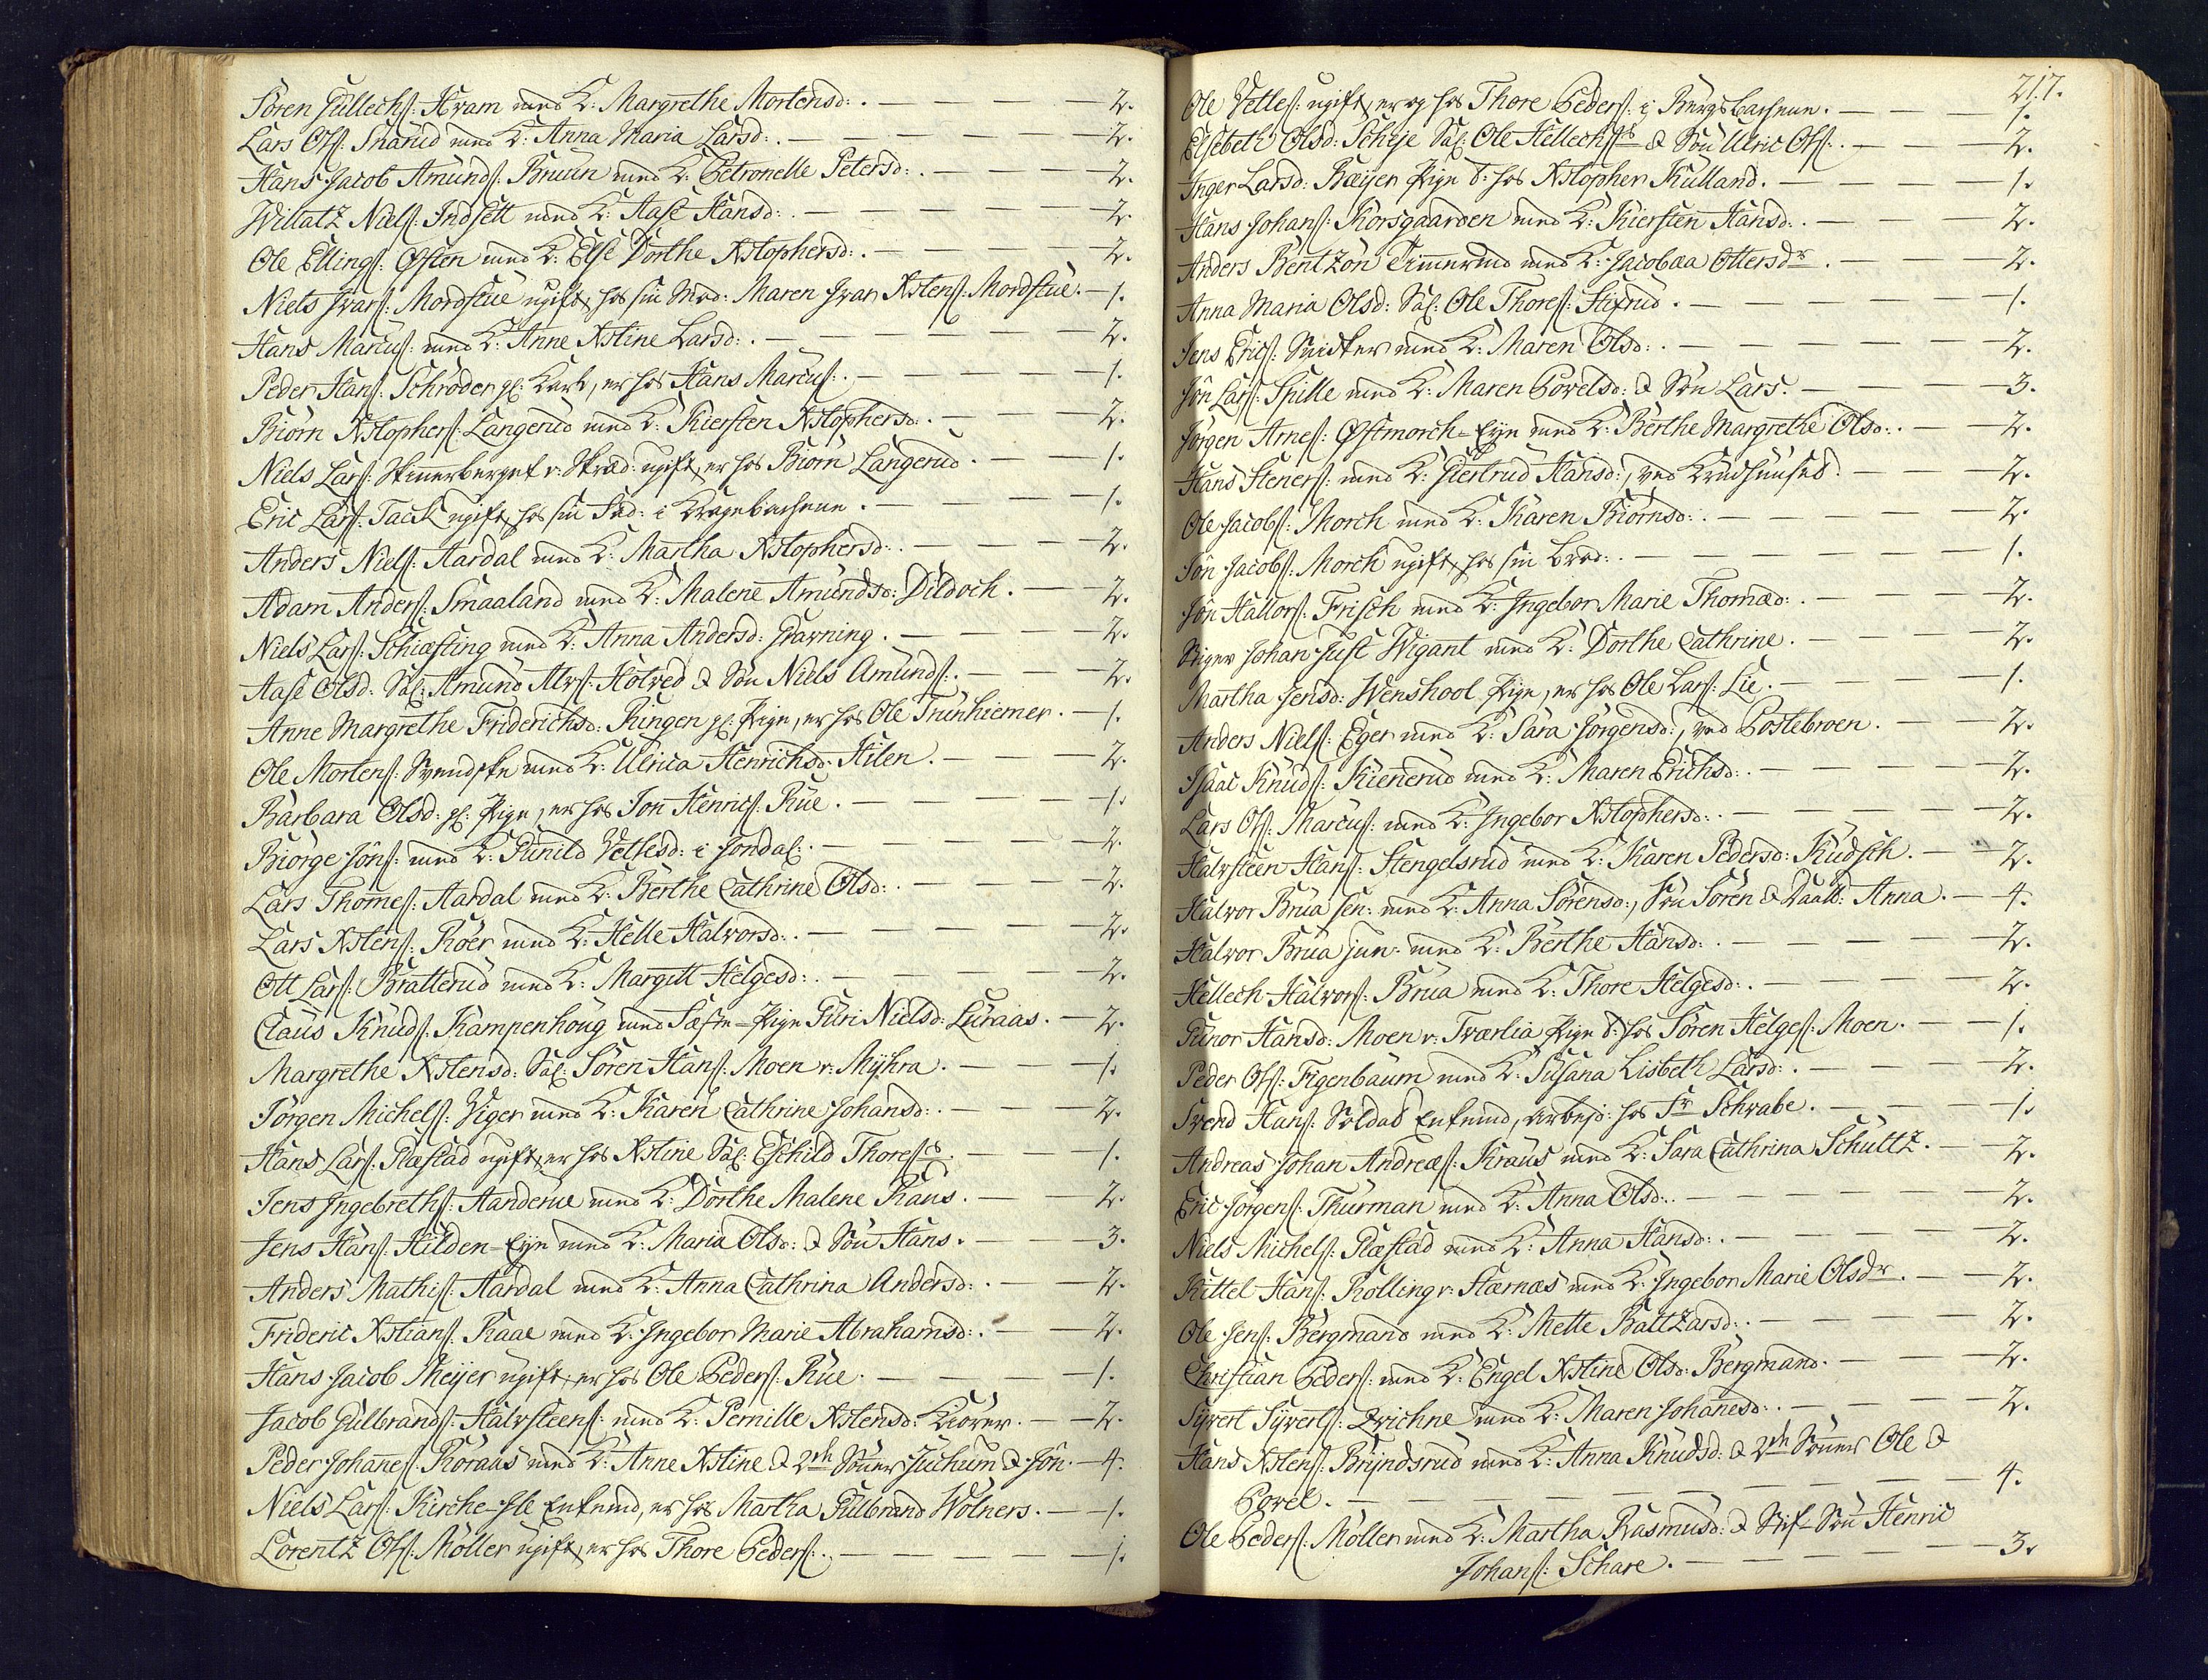 Sören Gullechs: Hvam med K: Margrethe Mortensd: . — 2.
Lars Ols: Skarud med K: Anna Maria Larsd: . — 2.
Hans Jacob Amunds: Bruun med K: Petronelle Petersd: . — 2.
Willatz Niels: Indsett med K: Aase Hansd: . — 2.
Ole Ellings: Østen med K: Else Dorthe Xstophersd: . — 2.
Niels Ivars: Mordstue ugift, hos sin Mod: Maren Ivar Xstens: Mordstue. — 1.
Hans Marcus: med K: Anne Xstine Larsd: . — 2.
Peder Hans: Schröder gl: Karl, er hos Hans Marcus: . — 1.
Biörn Xstophers: Langerud med K: Kiersten Xstophersd: . — 2.
Niels Lars: v: Skræd: ugift, er hos Biörn Langerud. — 1.
Eric Lars: Tack ugift, hos sin Fad: i Kragebachene. — 1.
Anders Niels: Aardal med K: Martha Xstophersd: . — 2.
Adam Anders: Smaaland med K: Malene Amundsd: Dildoch. — 2.
Niels Lars: Schiæsting med K: Anna Andersd: Gravning. — 2.
Aase Olsd: Sal: Amund Alvs: Holved & Sön Niels Amunds: . — 2.
Anne Margrethe Friderichsd: Ringen gl: Pige, er hos Ole Trunhiemer. — 1.
Ole Mortens: Svendske med K: Ulrica Henrichsd: Hilen. — 2.
Barbara Olsd: gl: Pige, er hos Jon Henrics: Rue. — 1.
Biörge Jöns: med K: Gunild Vetlesd: i Jondal: . — 2.
Lars Thomes: Aardal med K: Berthe Cathrine Olsd: . — 2.
Lars Xstens: Röer med K: Helle Halvorsd: . — 2.
Ott Lars: Bratterud med K: Margitt Helgesd: . — 2.
Claus Knuds: Kampenhoug med Fæste-Pige Guri Nielsd: Luraas. — 2.
Margrethe Xstensd: Sal: Sören Hans: Moen v: Myhra. — 1.
Jörgen Michels: Viger med K: Karen Cathrine Johansd: . — 2.
Hans Lars: Plæstad ugift, er hos Xstine Sal: Eschild Thores: . — 1.
Jens Ingebreths: Handerue med K: Dorthe Malene Raus. — 2.
Jens Hans: Hilden-Eye med K: Maria Olsd: & Sön Hans. — 3.
Anders Mathis: Aardal med K: Anna Cathrina Andersd: . — 2.
Frideric Xstians: Raae med K: Ingebor Marie Abrahamsd: . — 2.
Hans Jacob Meyer ugift, er hos Ole Peders: Rue. — 1.
Jacob Gulbrands: Halvsteens: med K: Pernille Xstensd: Kiörer. — 2.
Peder Johannes: Röraas med K: Anne Xstine & 2de Sönner Juchum & Jön. — 4.
Niels Lars: Kirche-Hle Enkemd, er hos Martha Gulbrand Wölners. — 1.
Lorentz Ols: Möller ugift, er hos Thore Peders: . — 1.
217.
Ole Vetles: ugift, er og hos Thore Peders: i Bergsbachene. — 1.
Elsebeth Olsd: Scheje Sal: Ole Hellechs: & Sön Ulric Ols: . — 2.
Inger Larsd: Bæijer Pige t: hos Xstopher Kulland. — 1.
Hans Johans: Korsgaarden med K: Kiersten Hansd: . — 2.
Anders Bentzön Timerud med K: Jacobæa Ottersdr. — 2.
Anna Maria Olsd: Sal: Ole Thores: Stifrud. — 1.
Jens Erics: Snidker med K: Maren Olsd: . — 2.
Jön Lars: Spille med K: Maren Povelsd: & Sön Lars. — 3.
Jörgen Arnes: Østmorch-Eye med K: Berthe Margrethe Olsd: . — 2.
Hans Steners: med K: Giertrud Hansd:, ved Krudhuuset. — 2.
Ole Jacobs: Morch med K: Karen Biörnsd: . — 2.
Jön Jacobs: Morch ugift, hos sin Brod: . — 1.
Jön Hallors: Frisch med K: Ingebor Marie Thomæd: . — 2.
Stiger Johan Just Wigant med K: Dorthe Cathrine. — 2.
Martha Jensd: Wenshool Pige, er hos Ole Lars: Lie. — 1.
Anders Niels: Eger med K: Sara Jörgensd:, ved Postebroen. — 2.
Isaac Knuds: Kienerud med K: Maren Erichsd: . — 2.
Lars Ols: Marcus: med K: Ingebor Xstophersd: . — 2.
Halvsteen Hans: Stengelsrud med K: Karen Pedersd: Kudsch. — 2.
Halvor Brua sen: med K: Anna Sörensd:, Sön Sören & Daatt: Anna. — 4.
Halvor Brua jun: med K: Berthe Hansd: . — 2.
Hellech Halvors: Brua med K: Thore Helgesd: . — 2.
Gunor Hansd: Moen v: Tværlia Pige t: hos Sören Helges: Moen. — 1.
Peder Ols: Figenbaum med K: Susana Lisbeth Larsd: . — 2.
Svend Hans: Soldat Enkemd, arbejd: hos Sr Schwabe. — 1.
Andreas Johan Andreæs: Kraus med K: Sara Cathrina Schultz. — 2.
Eric Jörgens: Thurman med K: Anna Olsd: . — 2.
Niels Michels: Plæstad med K: Anna Hansd: . — 2.
Kittel Hans: Kolling v: Stærnæs med K: Ingebor Marie Olsdr. — 2.
Ole Jens: Bergmand med K: Mette Baltzarsd: . — 2.
Christian Peders: med K: Engel Xstine Olsd: Bergmand. — 2.
Syvert Syverts: Zwichne med K: Maren Johanesd: . — 2.
Hans Xstens: Bryndsrud med K: Anna Knudsd: & 2de Sönner Ole &
Povel. — 4.
Ole Peders: Möller med K: Martha Rasmusd: & Stif-Sön Henric
Johans: Schare. — 3.